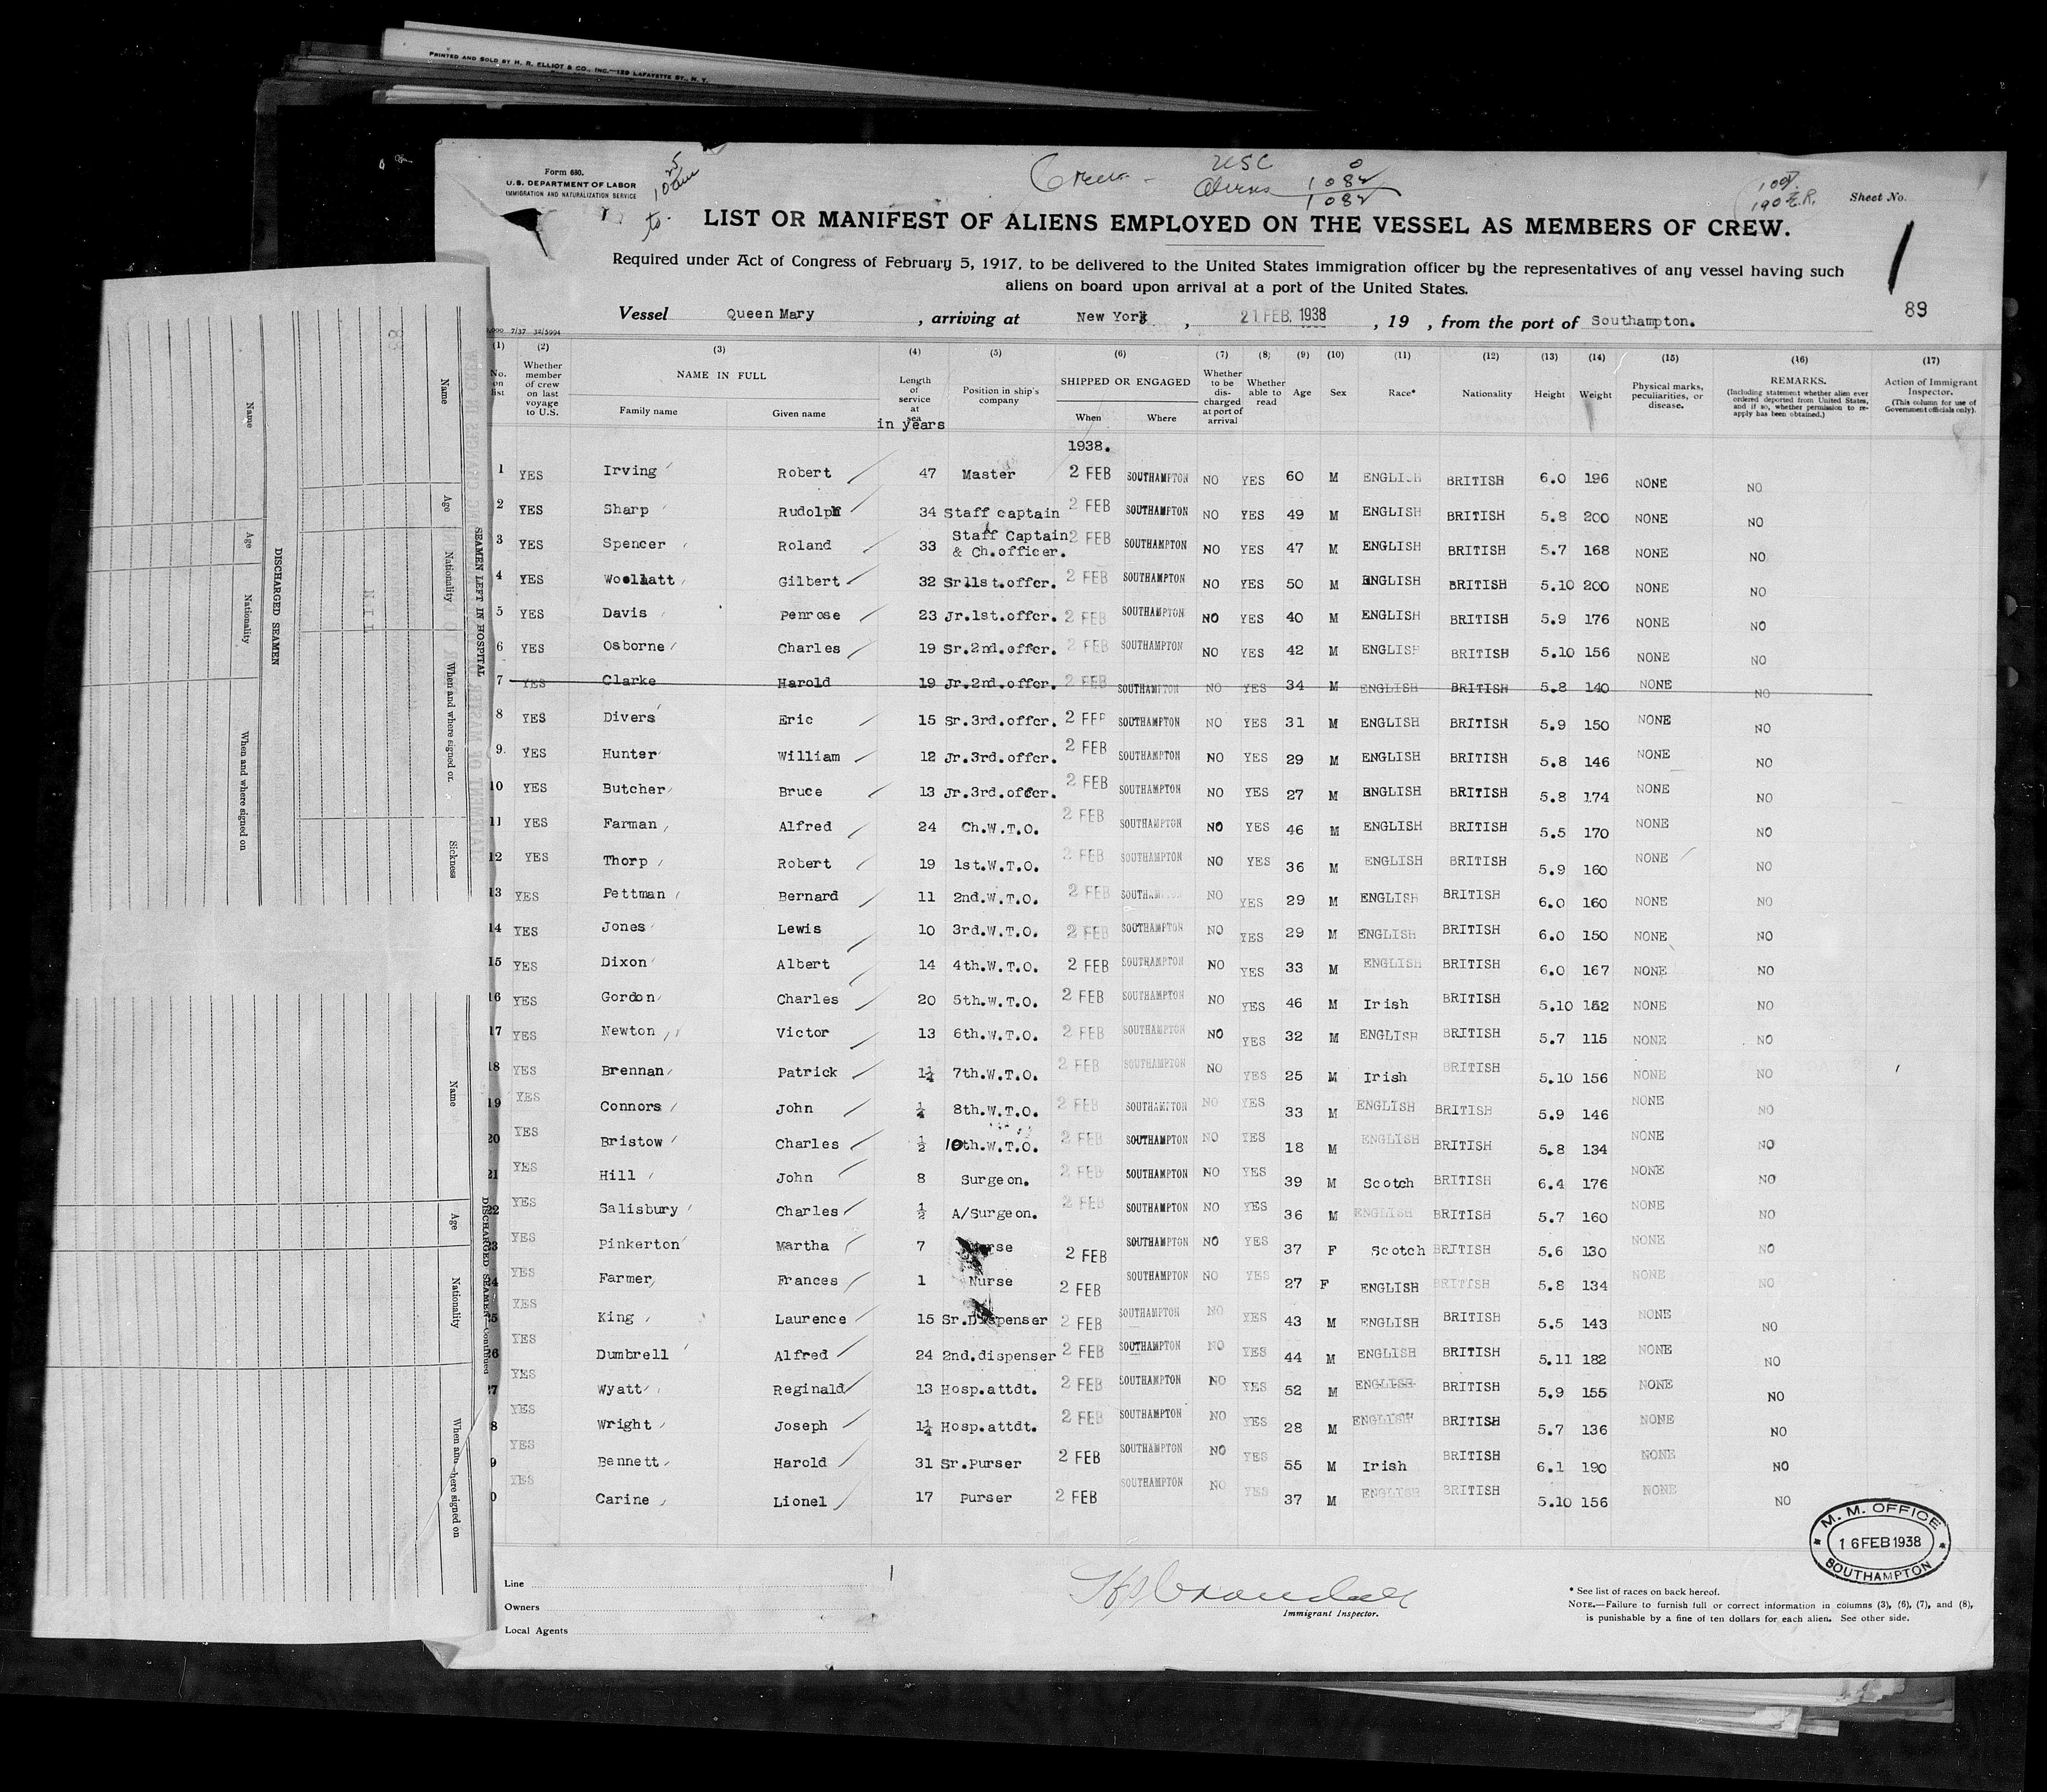 PRINTED AND SOLD BY H. R. ELLIOT & CO., INC.—129 LAFAYETTE ST., N. Y.
Form 680.
U. S. DEPARTMENT OF LABOR
IMMIGRATION AND NATURALIZATION SERVICE
Crew - USC 0
Aliens 1082
1082
Sheet No.
1
89
LIST OR MANIFEST OF ALIENS EMPLOYED ON THE VESSEL AS MEMBERS OF CREW.
Required under Act of Congress of February 5, 1917, to be delivered to the United States immigration officer by the representatives of any vessel having such
aliens on board upon arrival at a port of the United States.
Vessel Queen Mary, arriving at New York, 21 FEB. 1938, 19 , from the port of Southampton.
7/37 32/5994
(1) (2) (3) (4) (5) (6) (7) (8) (9) (10) (11) (12) (13) (14) (15) (16) (17)
No. on list
Whether member of crew on last voyage to U.S.
NAME IN FULL
Family name
Given name
Length of service at sea
in years
Position in ship's company
SHIPPED OR ENGAGED
When
Where
Whether to be discharged at port of arrival
Whether able to read
Age
Sex
Race*
Nationality
Height
Weight
Physical marks, peculiarities, or disease.
REMARKS.
(Including statement whether alien ever ordered deported from United States, and if so, whether permission to reapply has been obtained.)
Action of Immigrant Inspector.
(This column for use of Government officials only).
1938.
1 YES Irving Robert 47 Master 2 FEB SOUTHAMPTON NO YES 60 M ENGLISH BRITISH 6.0 196 NONE NO
2 YES Sharp Rudolph 34 Staff captain 2 FEB SOUTHAMPTON NO YES 49 M ENGLISH BRITISH 5.8 200 NONE NO
3 YES Spencer Roland 33 Staff Captain & Ch.officer. 2 FEB SOUTHAMPTON NO YES 47 M ENGLISH BRITISH 5.7 168 NONE NO
4 YES Woollatt Gilbert 32 Sr.1st.offcr. 2 FEB SOUTHAMPTON NO YES 50 M ENGLISH BRITISH 5.10 200 NONE NO
5 YES Davis Penrose 23 Jr.1st.offcr. 2 FEB SOUTHAMPTON NO YES 40 M ENGLISH BRITISH 5.9 176 NONE NO
6 YES Osborne Charles 19 Sr.2nd.offcr. 2 FEB SOUTHAMPTON NO YES 42 M ENGLISH BRITISH 5.10 156 NONE NO
7 YES Clarke Harold 19 Jr.2nd.offcr. 2 FEB SOUTHAMPTON NO YES 34 M ENGLISH BRITISH 5.8 140 NONE NO
8 YES Divers Eric 15 Sr.3rd.offcr. 2 FEB SOUTHAMPTON NO YES 31 M ENGLISH BRITISH 5.9 150 NONE NO
9. YES Hunter William 12 Jr.3rd.offcr. 2 FEB SOUTHAMPTON NO YES 29 M ENGLISH BRITISH 5.8 146 NONE NO
10 YES Butcher Bruce 13 Jr.3rd.offcr. 2 FEB SOUTHAMPTON NO YES 27 M ENGLISH BRITISH 5.8 174 NONE NO
11 YES Farman Alfred 24 Ch.W.T.O. 2 FEB SOUTHAMPTON NO YES 46 M ENGLISH BRITISH 5.5 170 NONE NO
12 YES Thorp Robert 19 1st.W.T.O. 2 FEB SOUTHAMPTON NO YES 36 M ENGLISH BRITISH 5.9 160 NONE NO
13 YES Pettman Bernard 11 2nd.W.T.O. 2 FEB SOUTHAMPTON NO YES 29 M ENGLISH BRITISH 6.0 160 NONE NO
14 YES Jones Lewis 10 3rd.W.T.O. 2 FEB SOUTHAMPTON NO YES 29 M ENGLISH BRITISH 6.0 150 NONE NO
15 YES Dixon Albert 14 4th.W.T.O. 2 FEB SOUTHAMPTON NO YES 33 M ENGLISH BRITISH 6.0 167 NONE NO
16 YES Gordon Charles 20 5th.W.T.O. 2 FEB SOUTHAMPTON NO YES 46 M Irish BRITISH 5.10 152 NONE NO
17 YES Newton Victor 13 6th.W.T.O. 2 FEB SOUTHAMPTON NO YES 32 M ENGLISH BRITISH 5.7 115 NONE NO
18 YES Brennan Patrick 1¼ 7th.W.T.O. 2 FEB SOUTHAMPTON NO YES 25 M Irish BRITISH 5.10 156 NONE NO
19 YES Connors John ¼ 8th.W.T.O. 2 FEB SOUTHAMPTON NO YES 33 M ENGLISH BRITISH 5.9 146 NONE NO
20 YES Bristow Charles ½ 10th.W.T.O. 2 FEB SOUTHAMPTON NO YES 18 M ENGLISH BRITISH 5.8 134 NONE NO
21 YES Hill John 8 Surgeon. 2 FEB SOUTHAMPTON NO YES 39 M Scotch BRITISH 6.4 176 NONE NO
22 YES Salisbury Charles ½ A/Surgeon. 2 FEB SOUTHAMPTON NO YES 36 M ENGLISH BRITISH 5.7 160 NONE NO
23 YES Pinkerton Martha 7 Nurse 2 FEB SOUTHAMPTON NO YES 37 F Scotch BRITISH 5.6 130 NONE NO
24 YES Farmer Frances 1 Nurse 2 FEB SOUTHAMPTON NO YES 27 F ENGLISH BRITISH 5.8 134 NONE NO
25 YES King Laurence 15 Sr.Dispenser 2 FEB SOUTHAMPTON NO YES 43 M ENGLISH BRITISH 5.5 143 NONE NO
26 YES Dumbrell Alfred 24 2nd.dispenser 2 FEB SOUTHAMPTON NO YES 44 M ENGLISH BRITISH 5.11 182 NONE NO
7 YES Wyatt Reginald 13 Hosp.attdt. 2 FEB SOUTHAMPTON NO YES 52 M ENGLISH BRITISH 5.9 155 NONE NO
8 YES Wright Joseph 1¼ Hosp.attdt. 2 FEB SOUTHAMPTON NO YES 28 M ENGLISH BRITISH 5.7 136 NONE NO
9 YES Bennett Harold 31 Sr.Purser 2 FEB SOUTHAMPTON NO YES 55 M Irish BRITISH 6.1 190 NONE NO
0 YES Carine Lionel 17 Purser 2 FEB SOUTHAMPTON NO YES 37 M ENGLISH BRITISH 5.10 156 NONE NO
M. M. OFFICE
16 FEB 1938
SOUTHAMPTON
Line
Owners
Local Agents
Immigrant Inspector.
* See list of races on back hereof.
NOTE.—Failure to furnish full or correct information in columns (3), (6), (7), and (8),
is punishable by a fine of ten dollars for each alien. See other side.
SEAMEN LEFT IN HOSPITAL
Name
Age
Nationality
When and where signed or.
Sickness
NIL
DISCHARGED SEAMEN
Name
Age
Nationality
When and where signed on
DISCHARGED SEAMEN—Continued
Name
Age
Nationality
When and where signed on